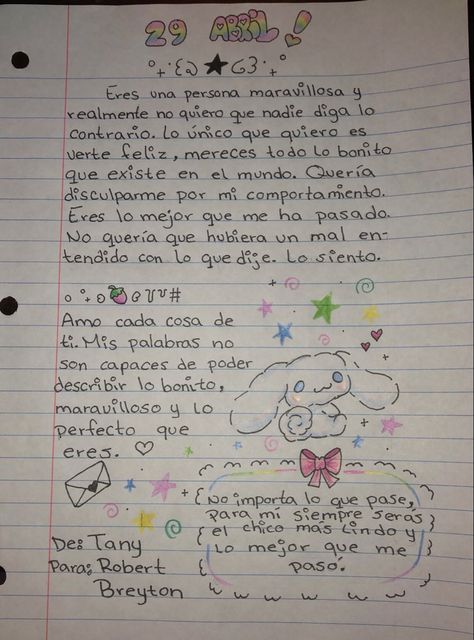 29 ABRIL!
Eres una persona maravillosa y
realmente no quiero que nadie diga lo
contrario. Lo único que quiero es
verte feliz, mereces todo lo bonito
que existe en el mundo. Quería
disculparme por mi comportamiento.
Eres lo mejor que me ha pasado.
No quería que hubiera un mal en-
tendido con lo que dije. Lo siento.
Amo cada cosa de
ti. Mis palabras no
son capaces de poder
describir lo bonito,
maravilloso y lo
perfecto que
eres. ♡
No importa lo que pase,
Para mí siempre serás
el chico más lindo y
lo mejor que me
pasó.
De: Tany
Para: Robert
Breyton